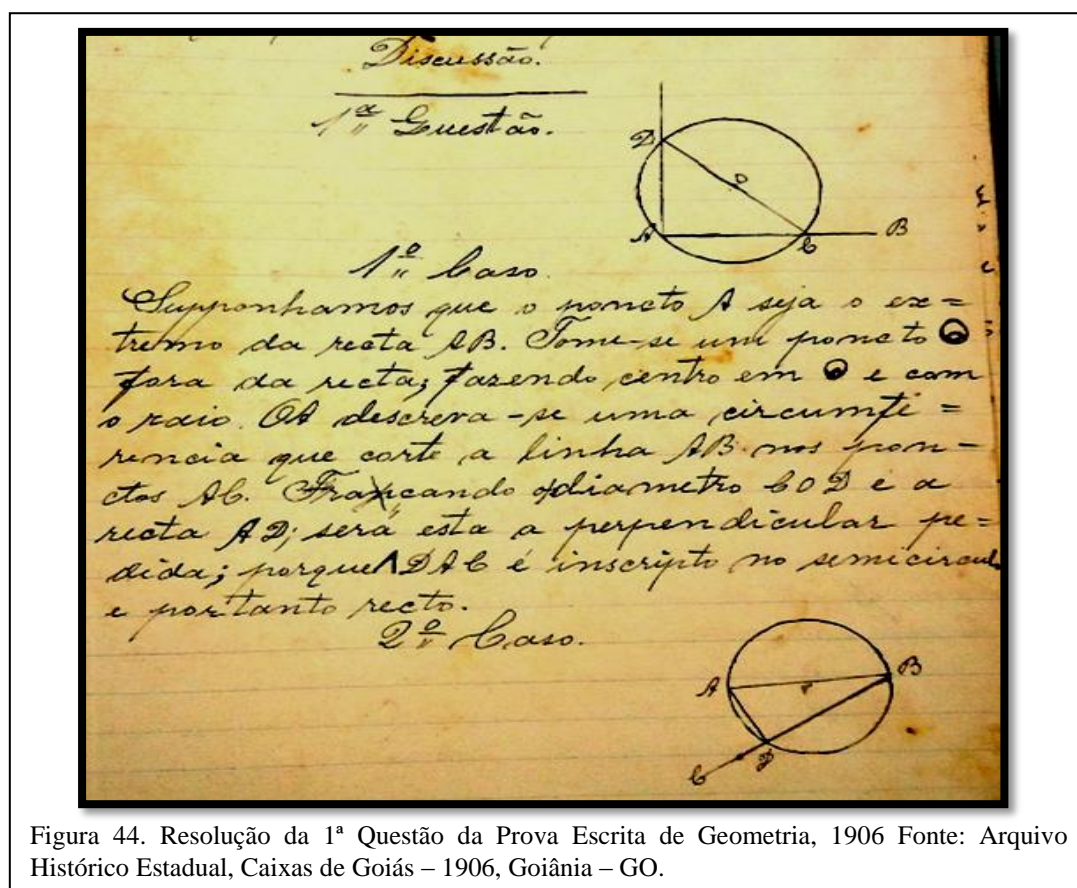 Discussão.
1ª Questão.
D
O
A
C
B
1º Caso.
Supponhamos que o poncto A seja o ex=
tremo da recta AB. Tome-se um poncto O
fora da recta; fazendo centro em O e com
o raio OA descreva-se uma circumfe=
rencia que corte a linha AB nos pon-
ctos AC. Traçando o diametro COD e a
recta AD; será esta a perpendicular pe=
dida; porque ∧ DAC é inscripto no semicircul
e portanto recto.
2º Caso.
A
B
C
D
Figura 44. Resolução da 1ª Questão da Prova Escrita de Geometria, 1906 Fonte: Arquivo
Histórico Estadual, Caixas de Goiás – 1906, Goiânia – GO.